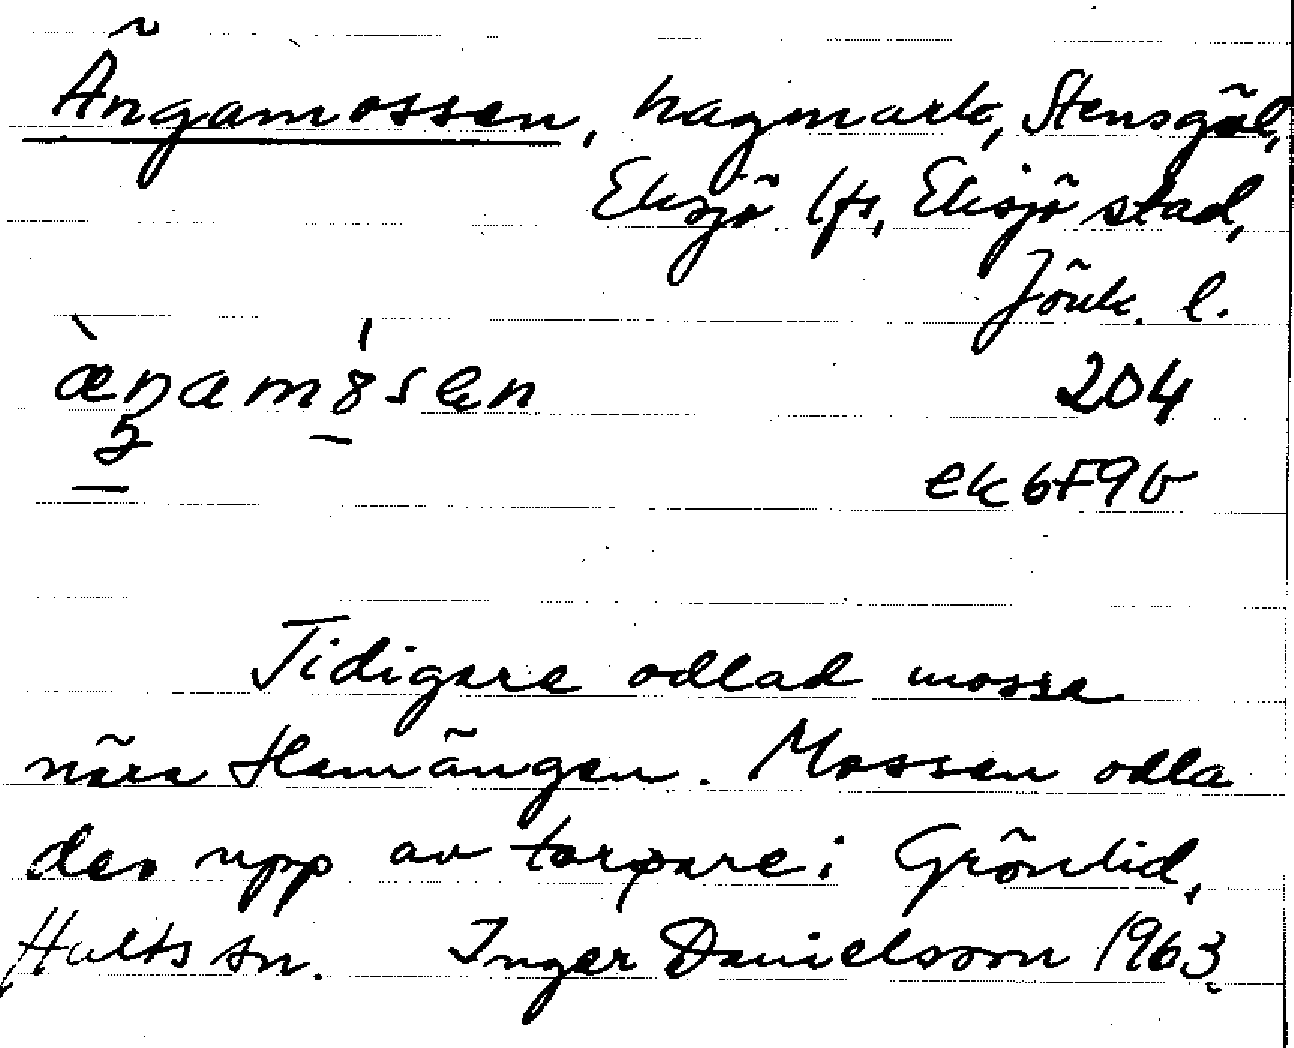 Ängamossen, hagmark, Stensgöl,
Eksjö lfs, Eksjö stad,
Jönk. l.
204
ek 6F9b
Tidigare odlad mossa
nära Hemängen. Mossen odla
des upp av torpare i Grönlid,
Hults sn. Inger Danielsson 1963